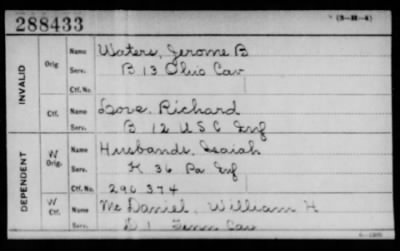 288433
(3-M-4)
INVALID
Orig
Name Waters, Jerome B
Serv. B 13 Ohio Cav
Ctf. No.
Ctf.
Name Love, Richard
Serv. B 12 U S C Inf
DEPENDENT
W Orig.
Name Husbands, Isaiah
Serv. K 36 Pa Inf
Ctf. No. 290374
W Ctf.
Name Mc Daniel, William H
Serv. D 1 Tenn Cav